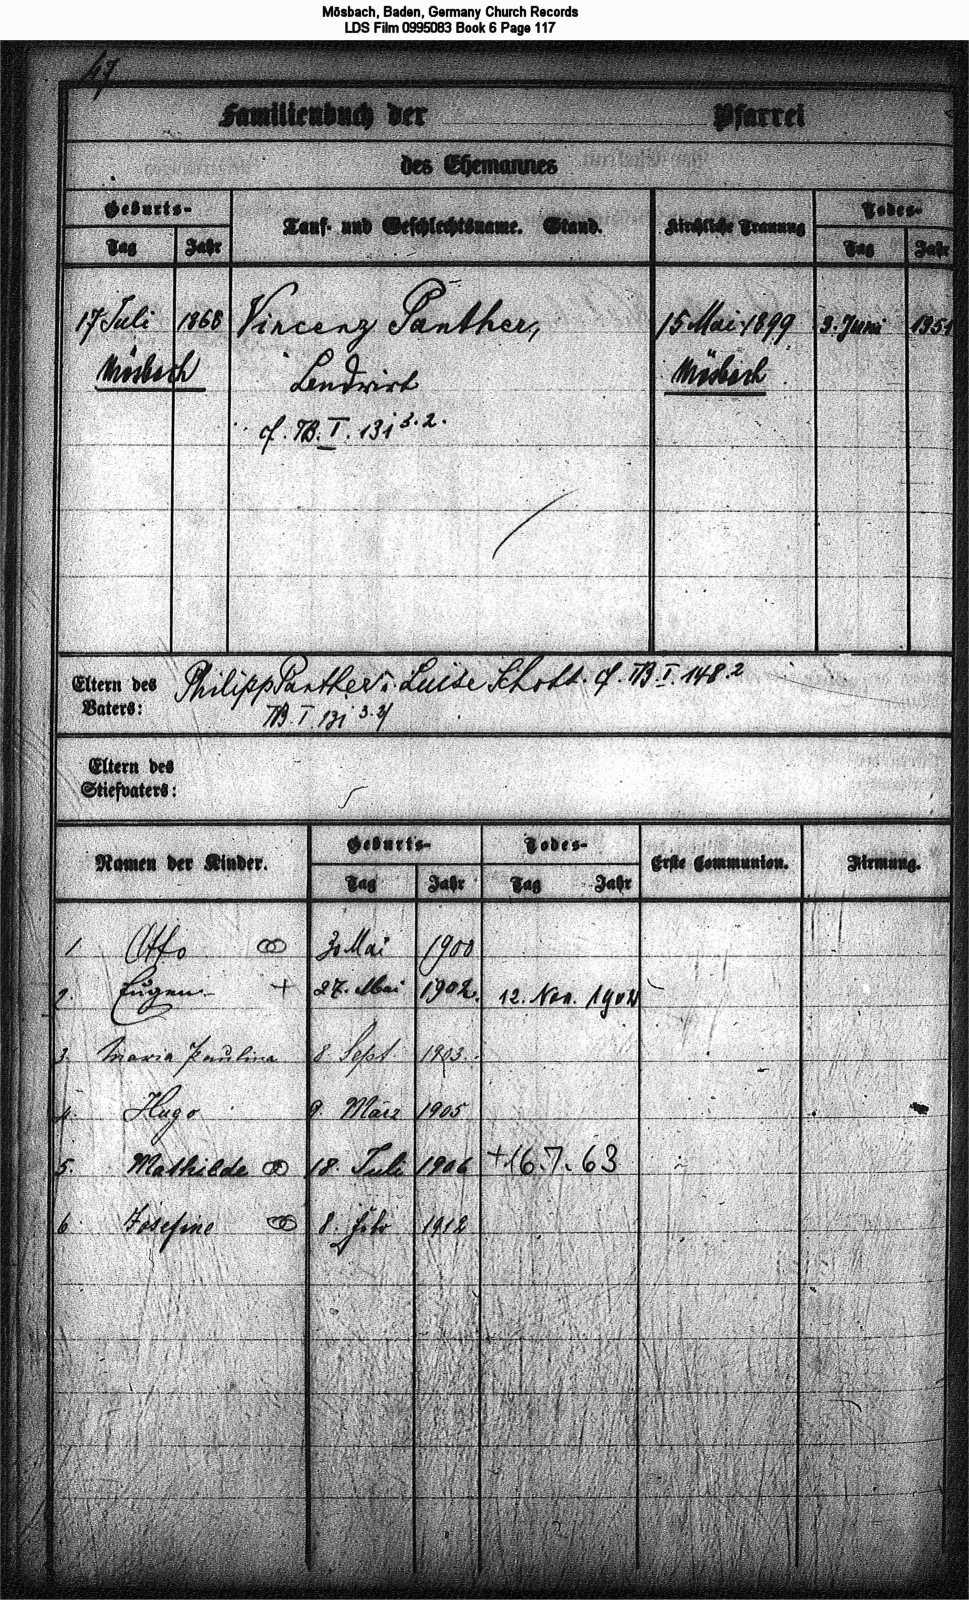 Mösbach, Baden, Germany Church Records
LDS Film 0995083 Book 6 Page 117
47
Familienbuch der Pfarrei
des Ehemannes
Geburts- Tauf- und Geschlechtsname. Stand. Kirchliche Trauung Todes-
Tag Jahr Tag Jahr
17 Juli 1868 Vincenz Panther, 15 Mai 1899 3. Juni 1951
Mösbach Landwirt Mösbach
cf. TB. I. 131 3.2.
Eltern des Vaters: Philipp Panther u. Luise Schott. cf. TB. I. 148.2
TB. I. 131 3.2
Eltern des
Stiefvaters:
Namen der Kinder. Geburts- Todes- Erste Communion. Firmung.
Tag Jahr Tag Jahr
1. Otto ⚭ 30 Mai 1900
2. Eugen + 27. Mai 1902. 12. Nov. 1902
3. Maria Paulina 8 Sept 1903.
4. Hugo 9. März 1905
5. Mathilde ⚭ 18. Juli 1906 +16.7.63
6 Josefine ⚭ 8. Febr 1912